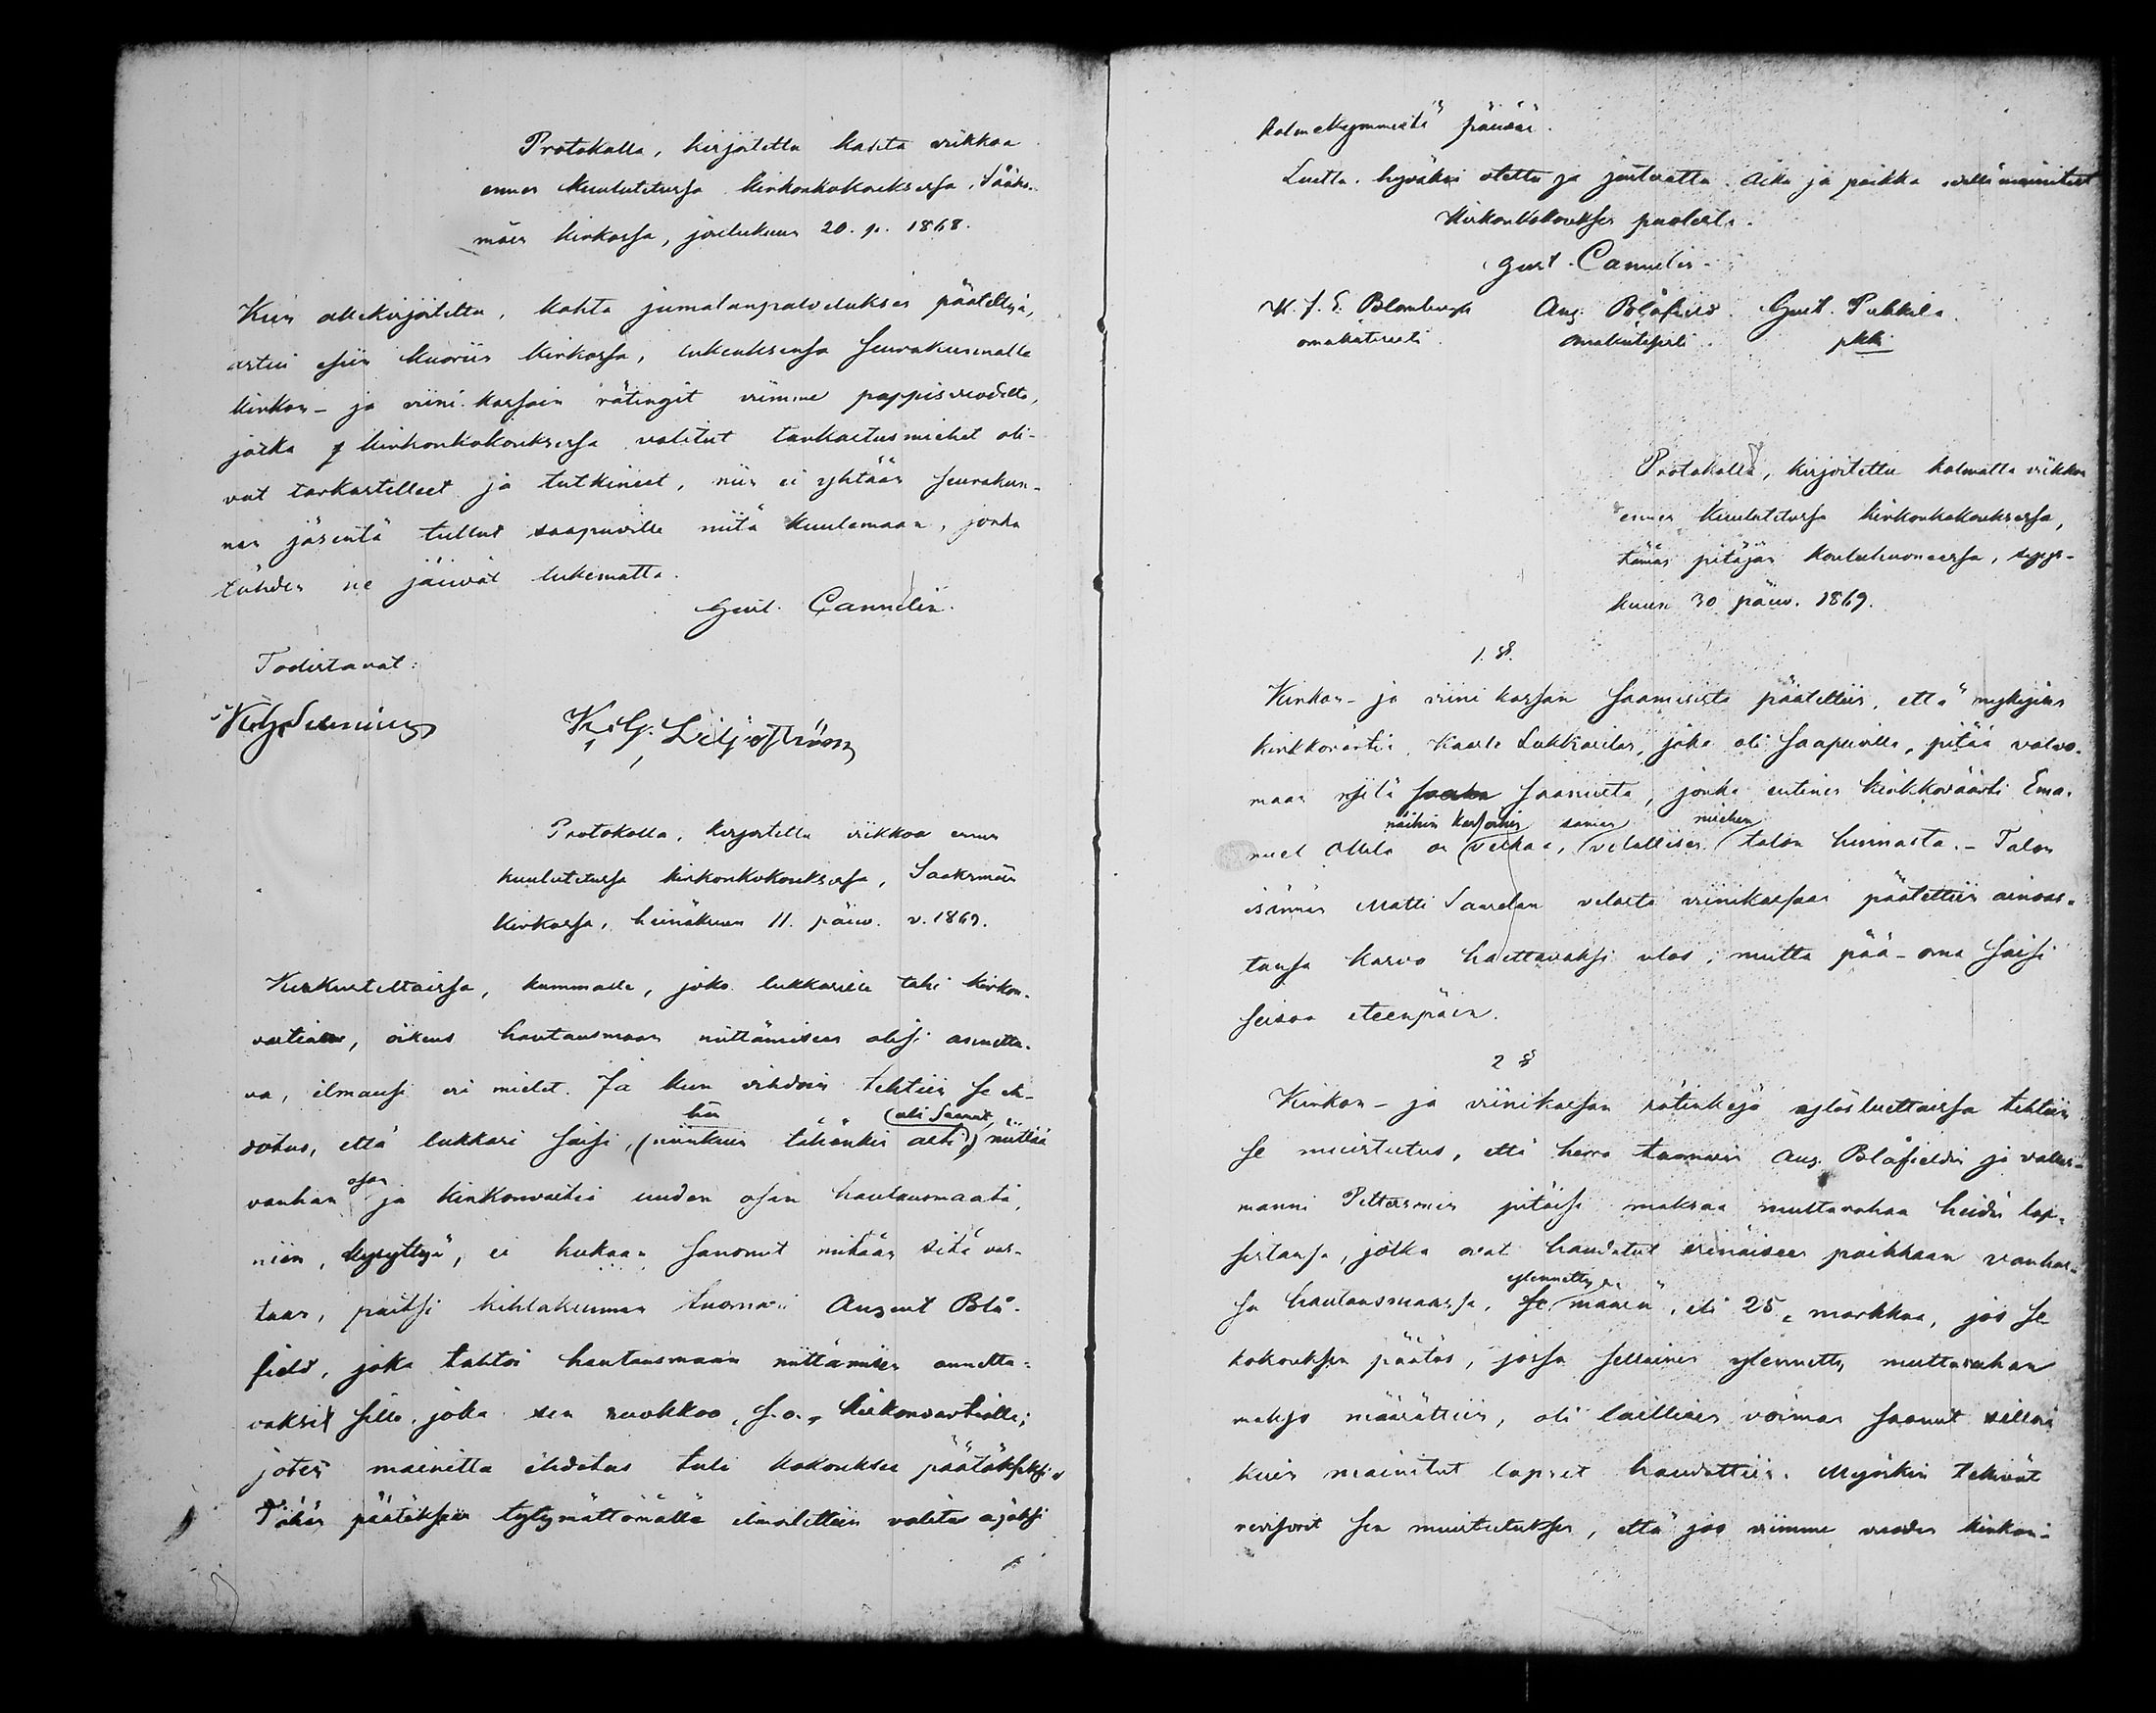 Protokolla, kirjoitettu kahta viikkoa
ennen kuulutetussa kirkonkokouksessa, Sääks-
mäen kirkossa, joulukuun 20. p. 1868.
Kuin allekirjoitettu, kahta jumalanpalveluksen päätettyä,
astui esiin kuoriin kirkossa, lukeuksensa seurakunnalle
kirkon- ja viini-kassain rätingit viimme pappisvuodelta,
jotka kirkonkokouksessa valitut tarkastusmiehet oli-
vat tarkastelleet ja tutkineet, niin ei yhtään seurakun-
nan jäsentä tullut saapuville niitä kuulemaan, jonka
tähden ne jäivät lukematta.
Gust. Cannelin.
Todistavat:
K. G. Liljeström
Protokolla, kirjoitettu viikkoa ennen
kuulutetussa kirkonkokouksessa, Sääksmäen
kirkossa, heinäkuun 11. päiw. v. 1869.
Keskusteltaissa, kummalle, joko lukkarille tahi kirkon-
vartialle, oikeus hautausmaan niittämiseen olisi annetta-
va, ilmausi eri mielet. Ja kun vihdoin tehtiin se eh-
hän (oli saanut,
dotus, että lukkari saisi, (niinkuin tähänkin asti) niittää
osan
vanhan ja kirkonvartia uuden osan hautausmaata,
niin, kysyttyä, ei kukaan sanonut mitään sitä vas-
taan, paitsi kihlakunnan tuomari August Blå-
field, joka tahtoi hautausmaan niittämisen annetta-
vaksi sille, joka sen ruokkoo, s.o. kirkonvartialle;
joten mainittu ehdotus tuli kokouksen päätökseksi.
Tähän päätökseen tytymättömälle ilmoitettiin valitus ajaksi
kolmekymmentä päivää.
Luettu, hyväksi otettu ja jäätvattu. Aika ja paikka edellämainitut
Kirkonkokouksen puolesta.
Gust. Cannelin.
K. J. E. Blomberg Aug. Blåfield. Gust. Pukkila.
omakätisesti. omakätisesti. pkk.
Protokolla, kirjoitettu kolmatta viikkoa
ennen kuulutetussa kirkonkokouksessa,
tämän pitäjän kouluhuoneessa, syys-
kuun 30 päiw. 1869.
1. §.
Kirkon- ja viini kassan saamisista päätettiin, että nykyinen
kirkkovärtti, Kaarle Lukkarilan, joka oli saapuvilla, pitää valvo-
maan sitä saamista, jonka entinen kirkkoväärti Ema-
näihin kassoihin saman miehen
nuel Ollila on velkaa, velallisen talon hinnasta. - Talon
isännän Matti Saurelan velasta viinikassaan päätettiin ainoas-
tansa kasvo haettavaksi ulos; mutta pää-oma saisi
seisoa eteenpäin.
2 §
Kirkon- ja viinikassan rätinkejä ylösluettaissa tehtiin
se muistutus, että herra tuomari Aug. Blåfieldin ja valles-
manni Pettersonin pitäisi maksaa multarahaa heidän lap-
sistansa, jotka ovat haudatut erinäiseen paikkaan vanhas-
ylennetty
sa hautausmaassa, se määrä, eli 25 markkaa, jos se
kokouksen päätös, jossa sellainen ylennetty multarahan
maksu määrättiin, oli laillisen voiman saanut silloin
kuin mainitut lapset haudattiin. Myöskin tekivät
revisorit sen muistutuksen, että jos viimme vuoden kirkon-